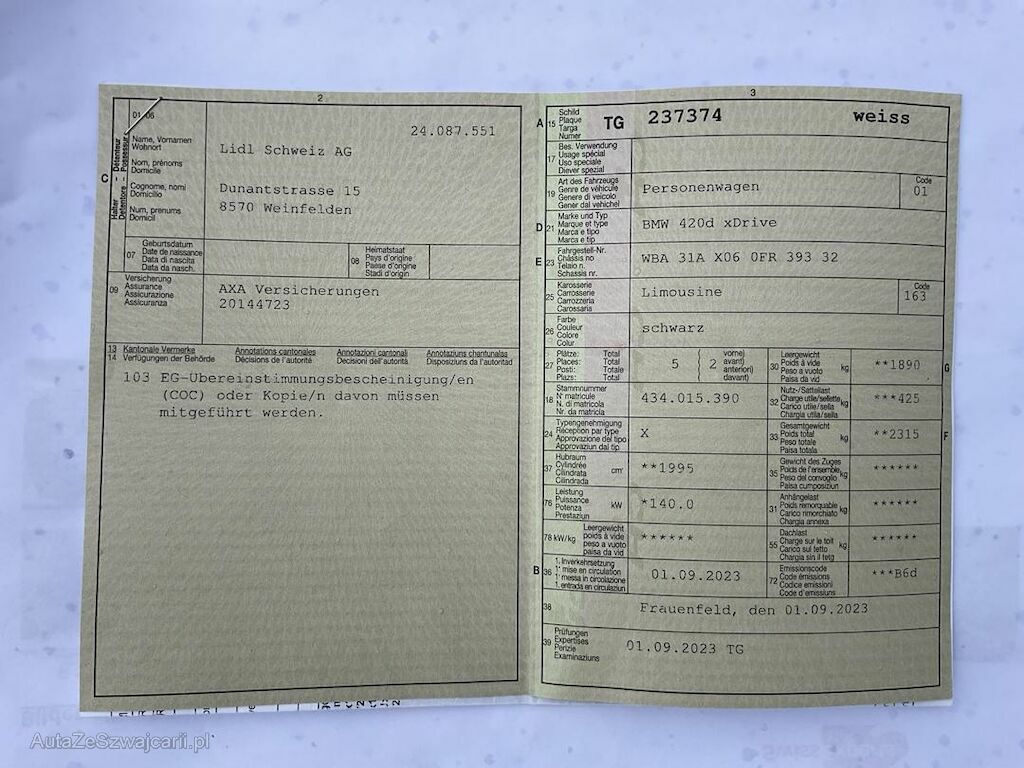 2
01-06
24.087.551
C
Halter - Détenteur
Detentore - Possessur
Name, Vornamen
Wohnort
Nom, prénoms
Domicile
Cognome, nomi
Domicilio
Num, prenums
Domicil
Lidl Schweiz AG
Dunantstrasse 15
8570 Weinfelden
07
Geburtsdatum
Date de naissance
Data di nascita
Data da nasch.
08
Heimatstaat
Pays d'origine
Paese d'origine
Stadi d'origin
09
Versicherung
Assurance
Assicurazione
Assicuranza
AXA Versicherungen
20144723
13 Kantonale Vermerke Annotations cantonales Annotazioni cantonali Annotaziuns chantunalas
14 Verfügungen der Behörde Décisions de l'autorité Decisioni dell'autorità Disposiziuns da l'autoritad
103 EG-Übereinstimmungsbescheinigung/en
(COC) oder Kopie/n davon müssen
mitgeführt werden.
3
A 15
Schild
Plaque
Targa
Numer
TG 237374 weiss
17
Bes. Verwendung
Usage spécial
Uso speciale
Diever spezial
19
Art des Fahrzeugs
Genre de véhicule
Genere di veicolo
Gener dal vehichel
Personenwagen
Code
01
D 21
Marke und Typ
Marque et type
Marca e tipo
Marca e tip
BMW 420d xDrive
E 23
Fahrgestell-Nr.
Châssis no
Telaio n.
Schassis nr.
WBA 31A X06 0FR 393 32
25
Karosserie
Carrosserie
Carrozzeria
Carossaria
Limousine
Code
163
26
Farbe
Couleur
Colore
Colur
schwarz
27
Plätze: Total
Places: Total
Posti: Totale
Plazs: Total
5 ( 2
vorne)
avant)
anteriori)
davant)
30
Leergewicht
Poids à vide
Peso a vuoto
Paisa da vid
kg
**1890
G
18
Stammnummer
N° matricule
N. di matricola
Nr. da matricla
434.015.390
32
Nutz-/Sattellast
Charge utile/sellette
Carico utile/sella
Chargia utila/sella
kg
***425
24
Typengenehmigung
Réception par type
Approvazione del tipo
Approvaziun dal tip
X
33
Gesamtgewicht
Poids total
Peso totale
Paisa totala
kg
**2315
F
37
Hubraum
Cylindrée
Cilindrata
Cilindrada
cm³
**1995
35
Gewicht des Zuges
Poids de l'ensemble
Peso del convoglio
Paisa cumposiziun
kg
******
76
Leistung
Puissance
Potenza
Prestaziun
kW
*140.0
31
Anhängelast
Poids remorquable
Carico rimorchiato
Chargia annexa
kg
******
78 kW/kg
Leergewicht
poids à vide
peso a vuoto
paisa da vid
******
55
Dachlast
Charge sur le toit
Carico sul tetto
Chargia sin il tetg
kg
******
B 36
1. Inverkehrsetzung
1re mise en circulation
1a messa in circolazione
1. entrada en circulaziun
01.09.2023
72
Emissionscode
Code émissions
Codice emissioni
Code d'emissiuns
***B6d
38
Frauenfeld, den 01.09.2023
39
Prüfungen
Expertises
Perizie
Examinaziuns
01.09.2023 TG
AutaZeSzwajcarii.pl